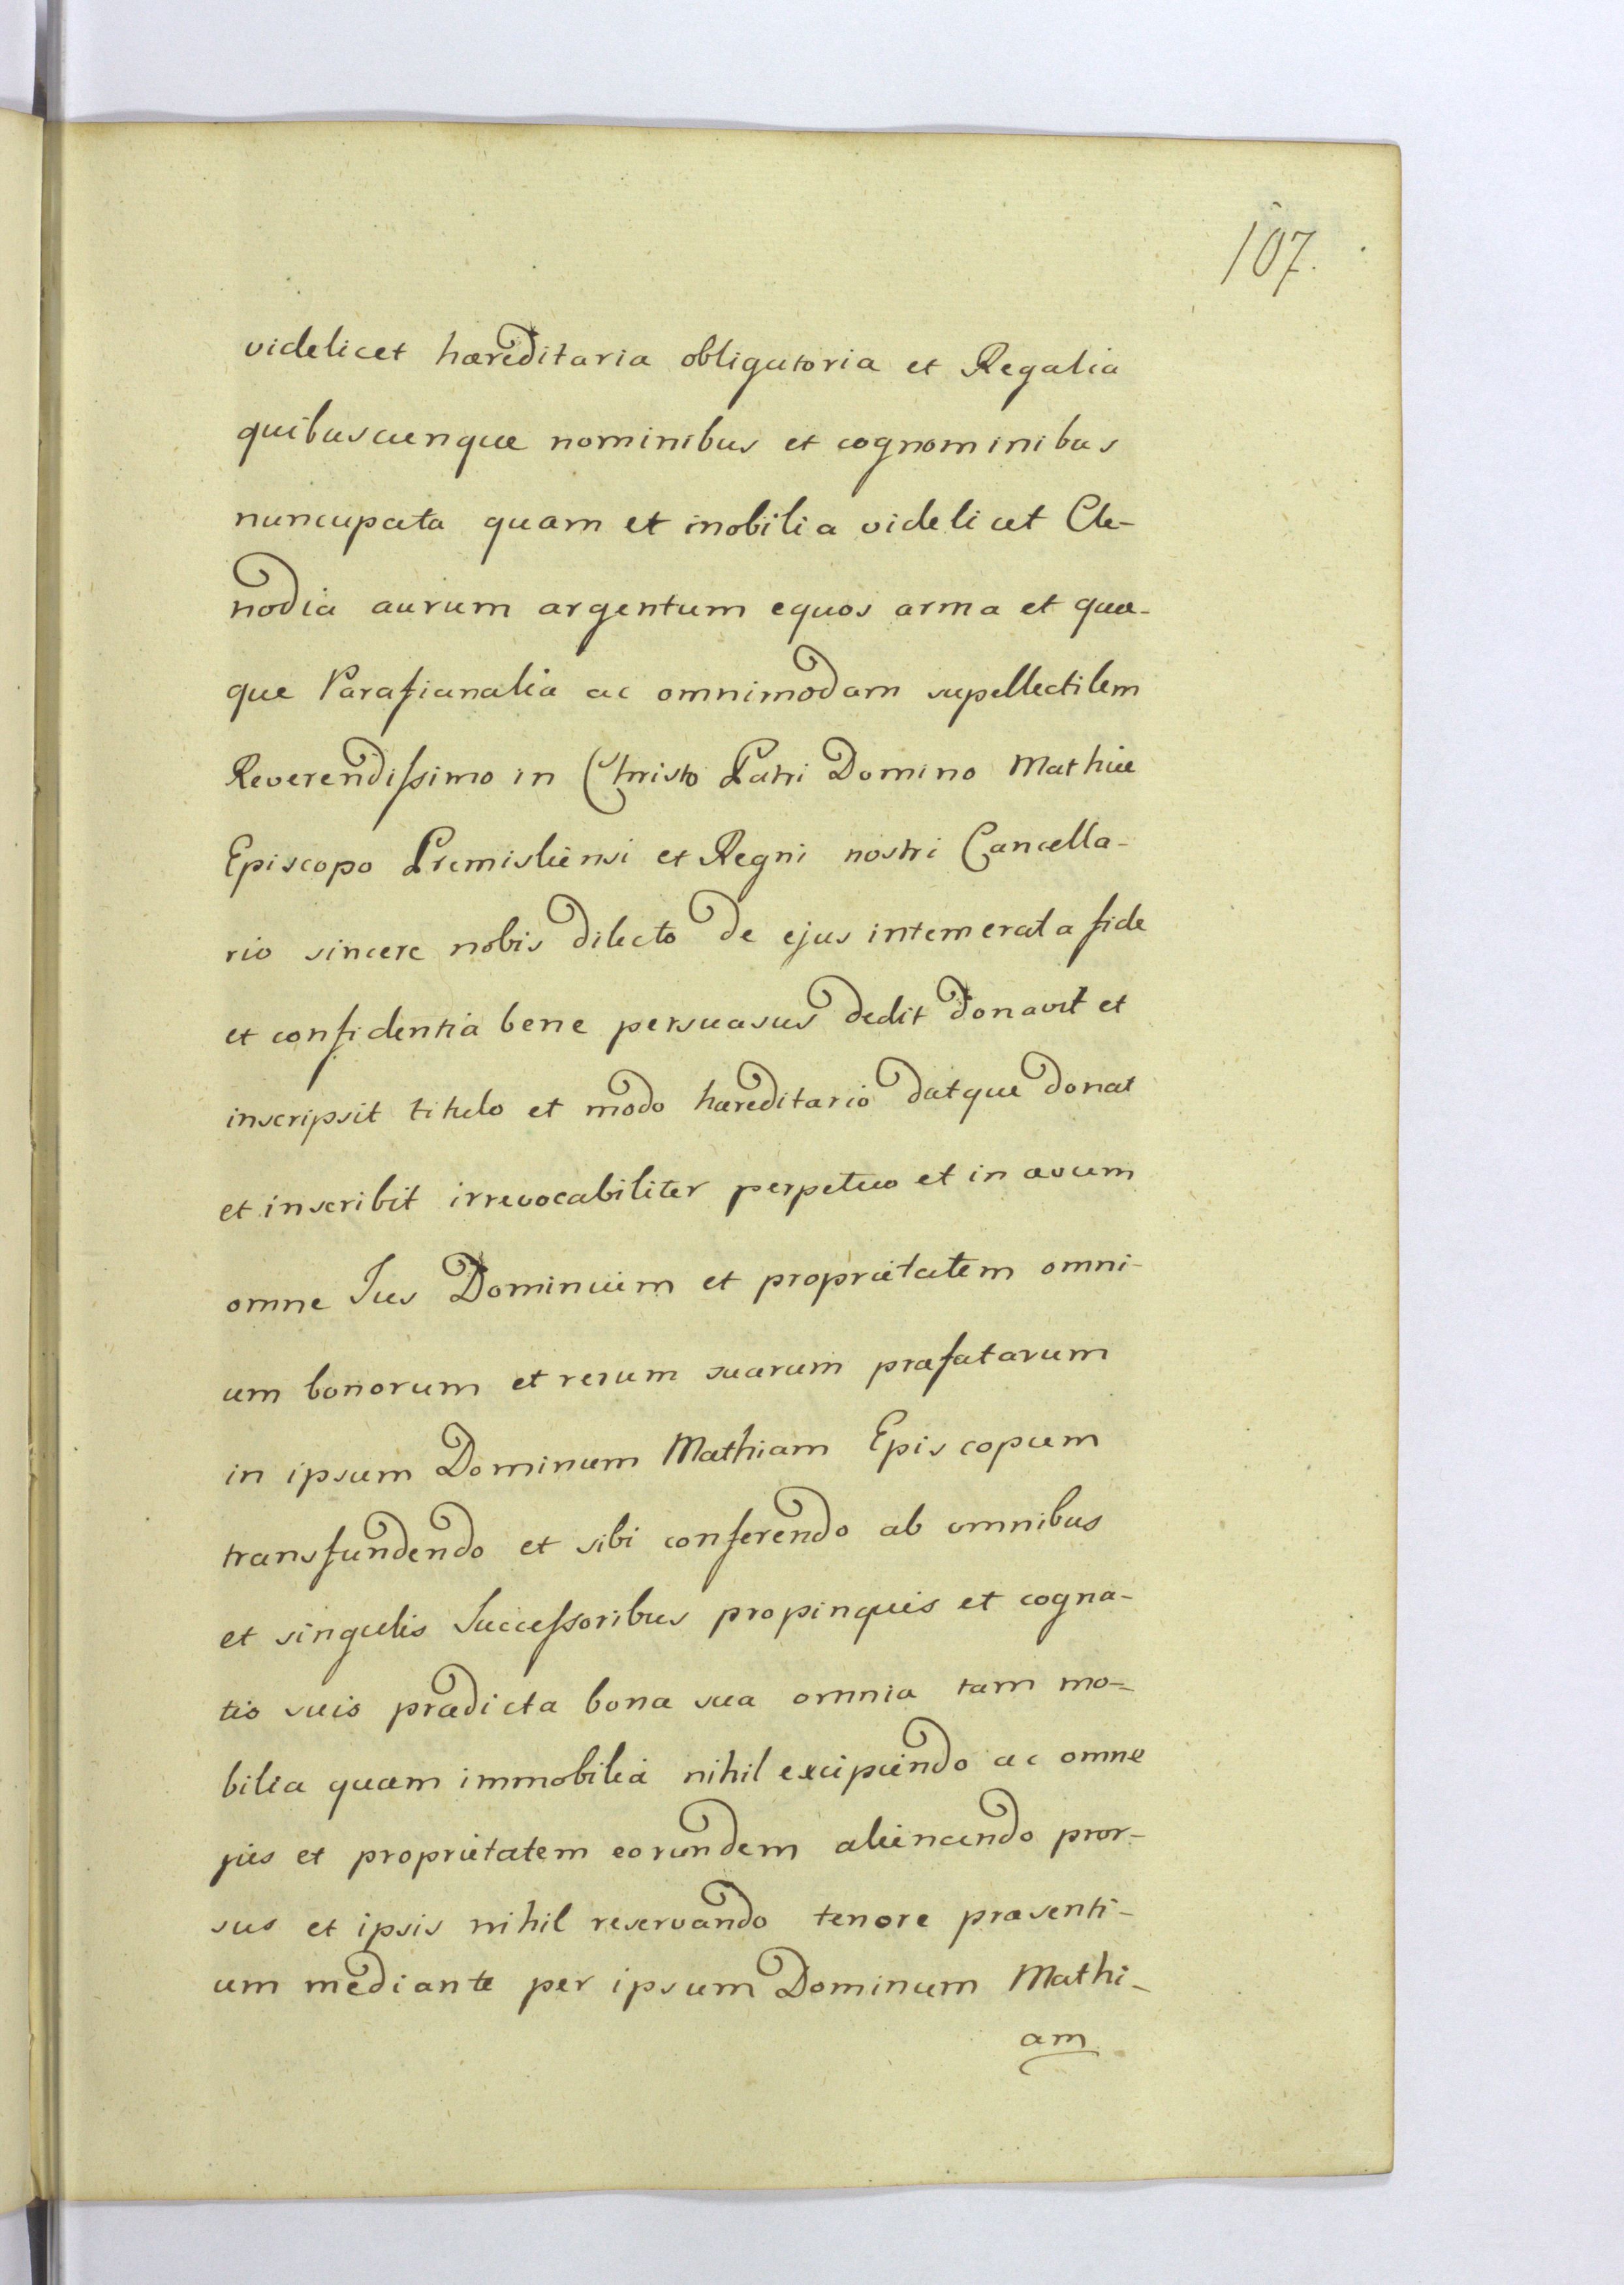 107.
videlicet hæreditaria obligatoria et Regalia
quibuscunque nominibus et cognominibus
nuncupata quam et mobilia videlicet Cle-
nodia aurum argentum equos arma et quæ-
que Parafianalia ac omnimodam supellectilem
Reverendissimo in Christo Patri Domino Mathiæ
Episcopo Premisliensi et Regni nostri Cancella-
rio sincere nobis dilecto de ejus intemerata fide
et confidentia bene persuasus dedit donavit et
inscripsit titulo et modo hæreditario datque donat
et inscribit irrevocabiliter perpetuo et in ævum
omne Jus Dominium et proprietatem omni-
um bonorum et rerum suarum præfatarum
in ipsum Dominum Mathiam Episcopum
transfundendo et sibi conferendo ab omnibus
et singulis Successoribus propinquis et cogna-
tis suis prædicta bona sua omnia tam mo-
bilia quam immobilia nihil excipiendo ac omne
jus et proprietatem eorundem alienando pror-
sus et ipsis nihil reservando tenore præsenti-
um mediante per ipsum Dominum Mathi-
am